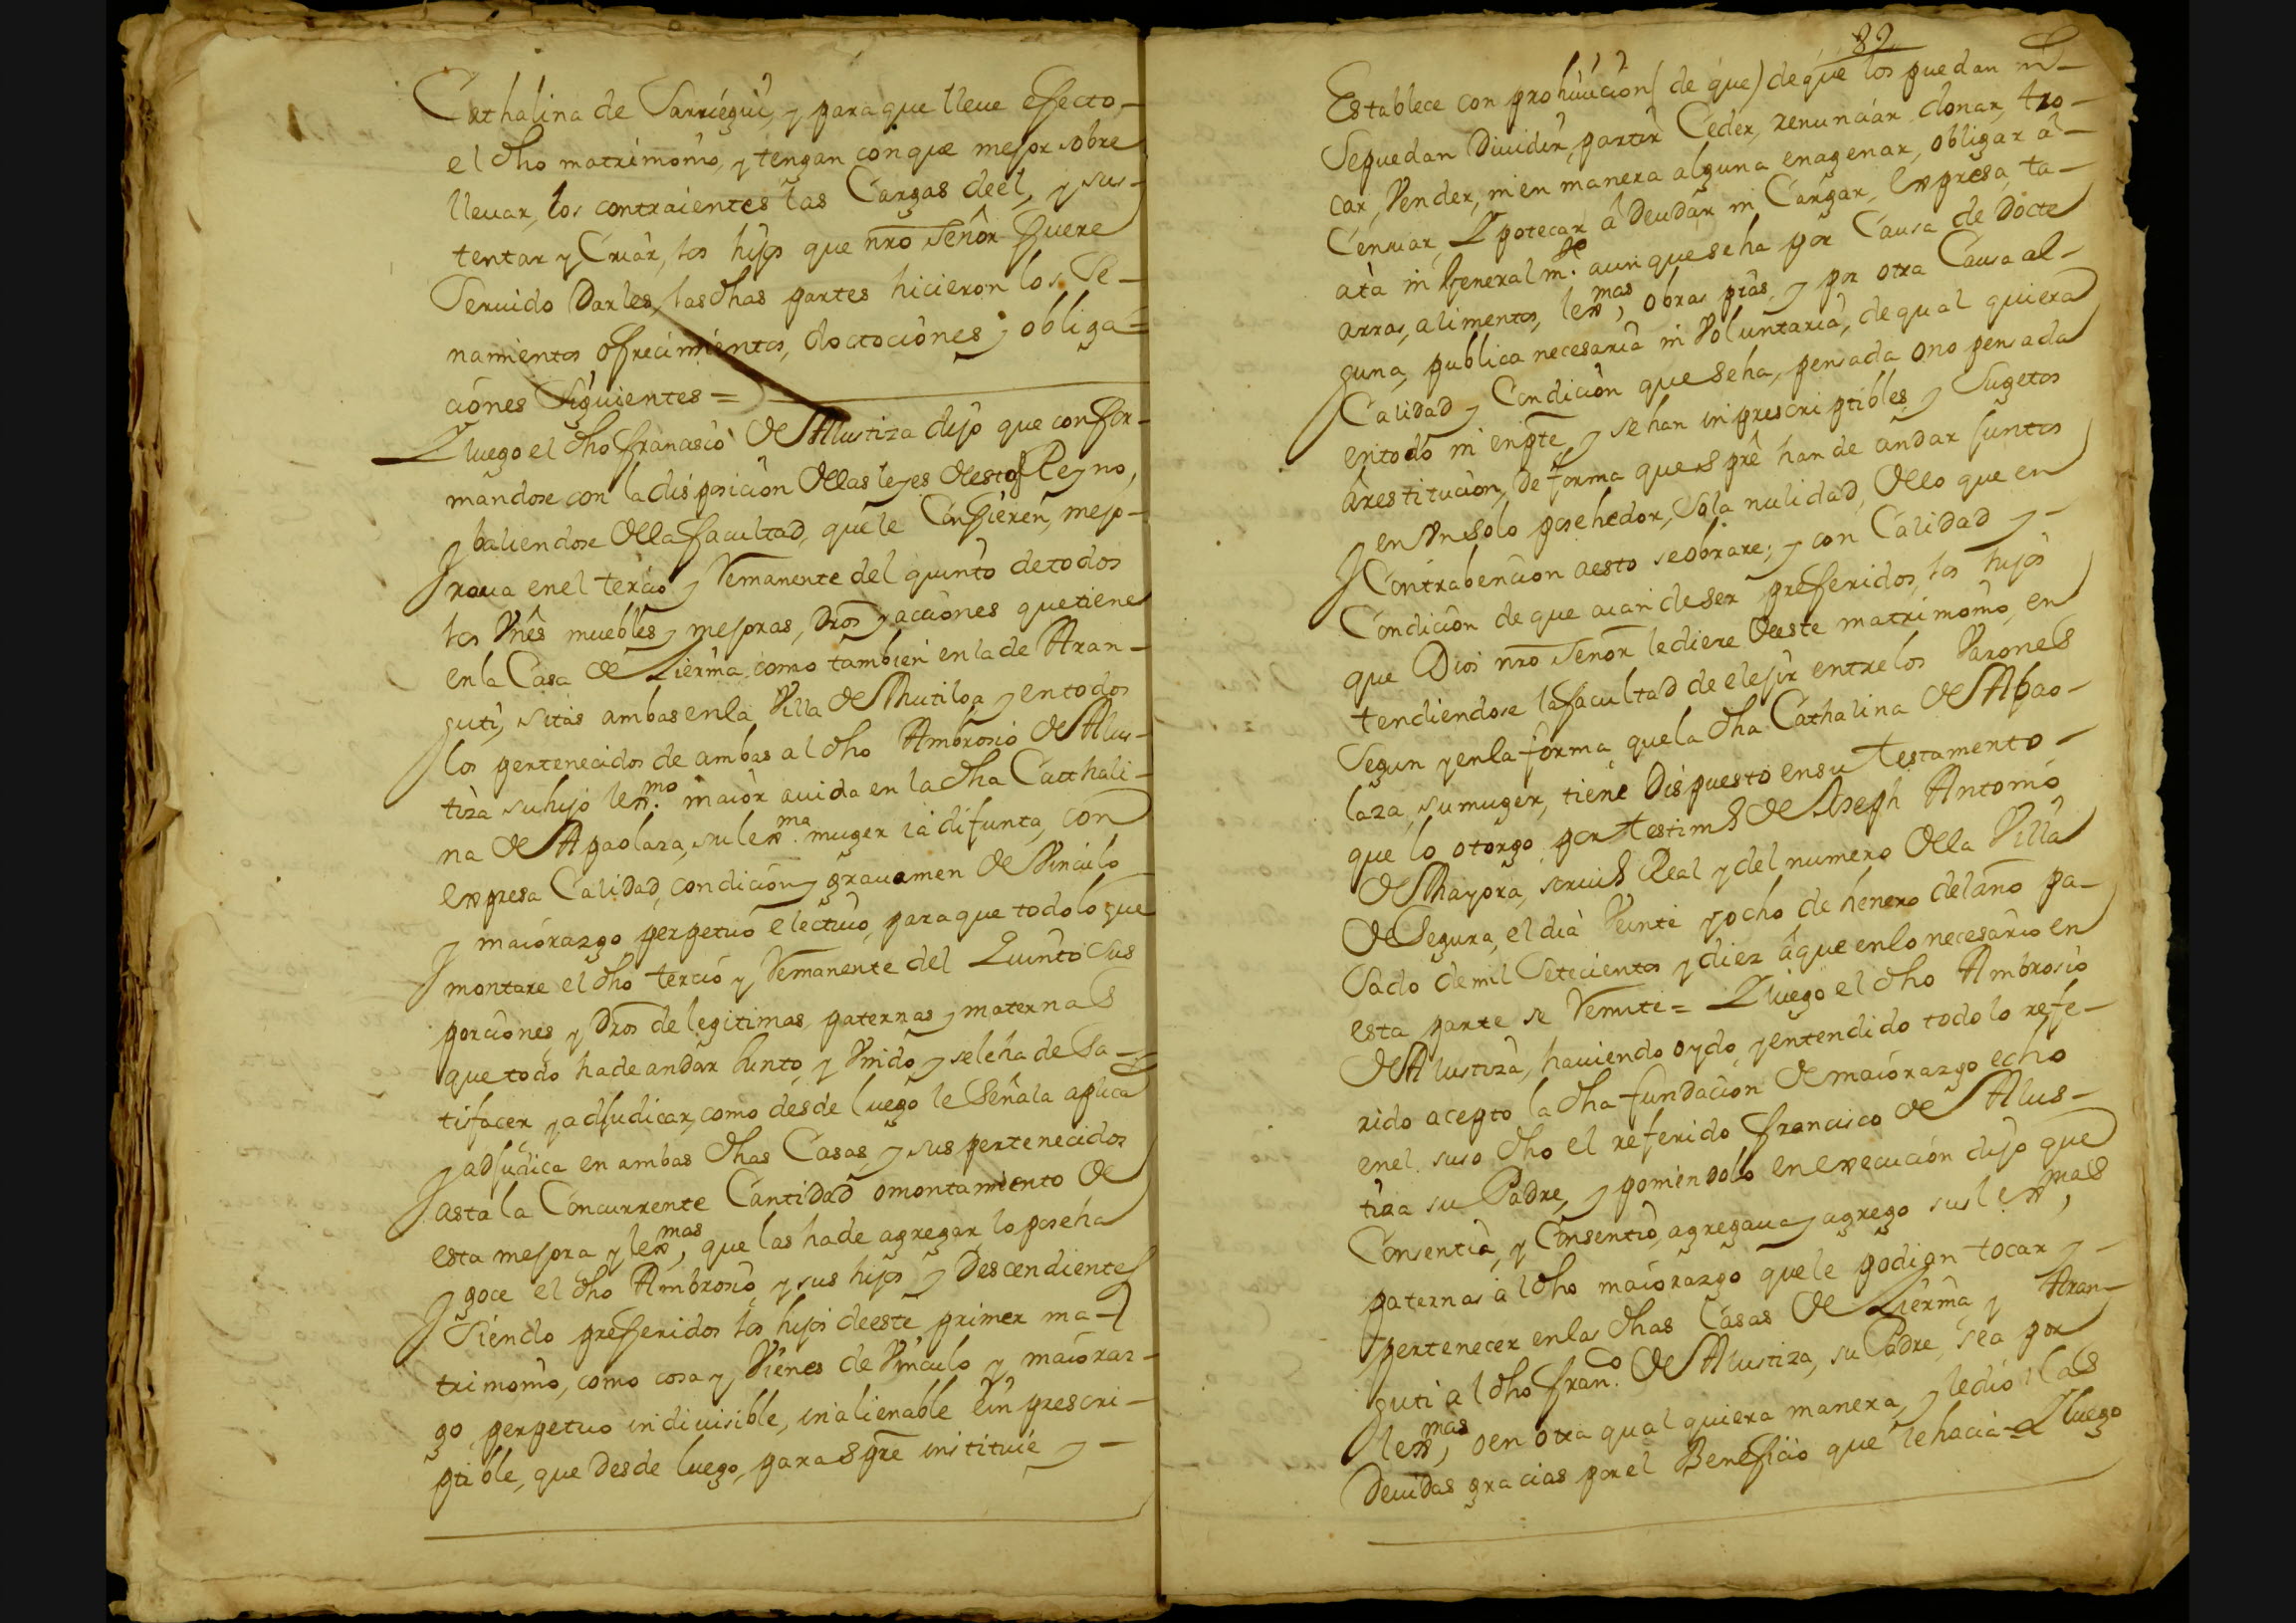 Cathalina de Sarriegui, y para que lleue efecto,
el dho matrimonio, y tengan con que mejor sobre
lleuar, los contraientes las Cargas de el, y sus-
tentar y Criar, los hijos que nro Señor fuere
Seruido Darles, las dhas partes hicieron los Se-
ñamientos ofrecimientos, doctociones y obliga=
ciones Siguientes =
Luego el dho franasco de Alustiza dijo que confor-
mandose con la disposicion de las leyes de estos Reyno,
y baliendose de la facultad, que le Confieren, mejo-
raua en el tercio y Remanente del quinto de todos
los Vnês muebles y mejoras, Dros y acciones que tiene
en la Casa de Lierma como tambien en la de Aran-
guti, sitas ambas en la Villa de Mutiloa y en todos
los pertenecidos de ambas al dho Ambrosio de Alus-
tiza su hijo lexmo. maior auida en la dha Catthali-
na de Apaolaza, su lexma. muger ia difunta, con
expresa Calidad, condicion y grauamen de Vinculo
y maiorazgo perpetuo electiuo, para que todo lo que
montare el dho tercio y Remanente del Quinto sus
porciones, y Dros de legitimas paternas y maternas
que todo ha de andar Junto, y Vnido y se le ha de Sa-
tisfacer y adjudicar, como desde luego le Señala aplica
y adjudica en ambas dhas Casas, y sus pertenecidos
asta la Concurrente Cantidad o montamiento de
esta mejora y lexmas, que las ha de agregar lo poseha
y goce el dho Ambrosio, y sus hijos y Descendientes
Siendo preferidos los hijos de este primer ma-
trimonio, como cosa y Vienes de Vinculo y maioraz-
go perpetuo indiuisible, inalienable e in prescri-
ptible, que desde luego, para Spre instituie y -
82
Establece con prohiuicion (de que) de que los puedan ni
Se puedan Diuidir, partir Ceder, renunciar donar, tro-
car, Vender, ni en manera alguna enagenar, obligar a-
Censuar, Ypotecar a Deudar ni Cargar, expresa, ta-
cita ni General mte. aunque se ha por Causa de Docte
arras, alimentos, lexmas, obras pias, y por otra Causa al-
guna, publica necesaria ni Voluntaria, de qual quiera
Calidad y Condicion que se ha, pensada o no pensada
en todo ni en pte, y se han in prescriptibles y Sugetos
a restitucion, De forma que Spre han de andar juntos
y en Vn solo posehedor, So la nulidad, de lo que en
Contrabencion a esto se obrare; y con Calidad y -
Condicion de que aian de ser preferidos, los hijos
que Dios nro Señor le diere de este matrimonio, en
tendiendose la facultad de elejir entre los Varones
Segun y en la forma que la dha Cathalina de Apao-
laza, su muger, tiene Dispuesto en su testamento -
que lo otorgo por testimo de Joseph Antonio
de Mayora, scriuno Real y del numero de la Villa
de Segura, el dia Veinte y ocho de henero del año pa-
sado de mil Setecientos y diez a que en lo necesario en
esta parte se Remite = Luego el dho Ambrosio
de Alustiza, hauiendo oydo, y entendido todo lo refe-
rido acepto la dha fundacion de maiorazgo echo
en el suso dho el referido francisco de Alus-
tiza su Padre, y poniendolo en execucion dijo que
Consentia, y Consentio, agregaua y agrego sus lexmas,
paternas al dho maiorazgo que le podian tocar y -
pertenecer en las dhas Casas de Lierma y Aran-
guti al dho franco. de Alustiza, su Padre, sea por
lexmas, o en otra qual quiera manera, y le dio las
Deuidas gracias por el Beneficio que le hacia = Luego